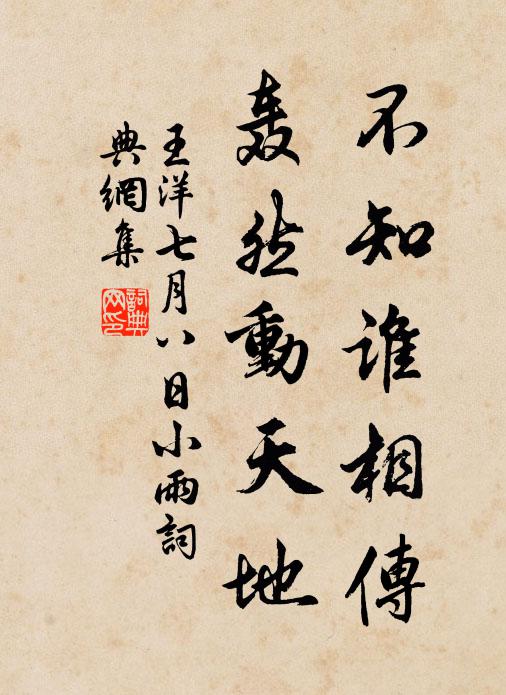 不知谁相傳
轰然動天地
王洋七月八日小雨詞
典網集
詞典网印